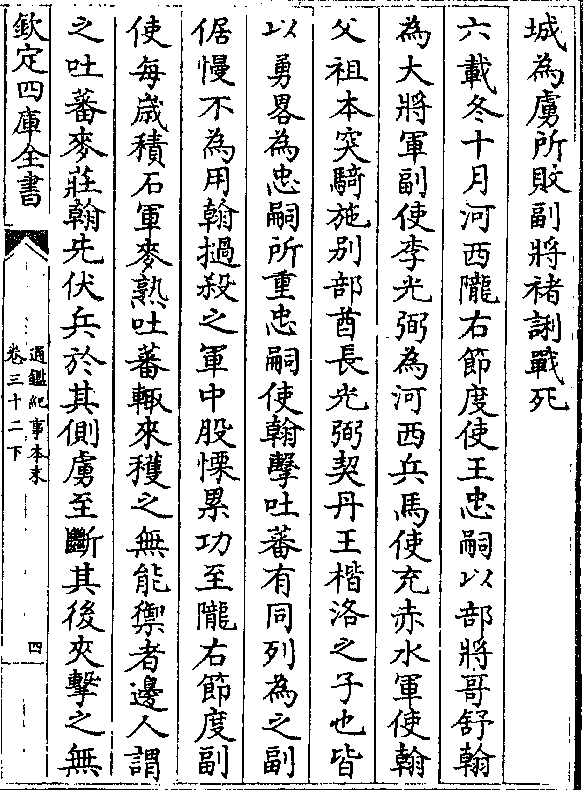 城為虜所敗副將褚誗戰死
六載冬十月河西隴右節度使王忠嗣以部將哥舒翰
為大將軍副使李光弼為河西兵馬使充赤水軍使翰
父祖本突騎施别部酋長光弼契丹王楷洛之子也皆
以勇畧為忠嗣所重忠嗣使翰擊吐蕃有同列為之副
倨慢不為用翰撾殺之軍中股慄累功至隴右節度副
使每歳積石軍麥熟吐蕃輙來穫之無能禦者邊人謂
之吐蕃麥莊翰先伏兵於其側虜至斷其後夾擊之無
欽定四庫全書
通鑑紀事本末
卷三十二下
四